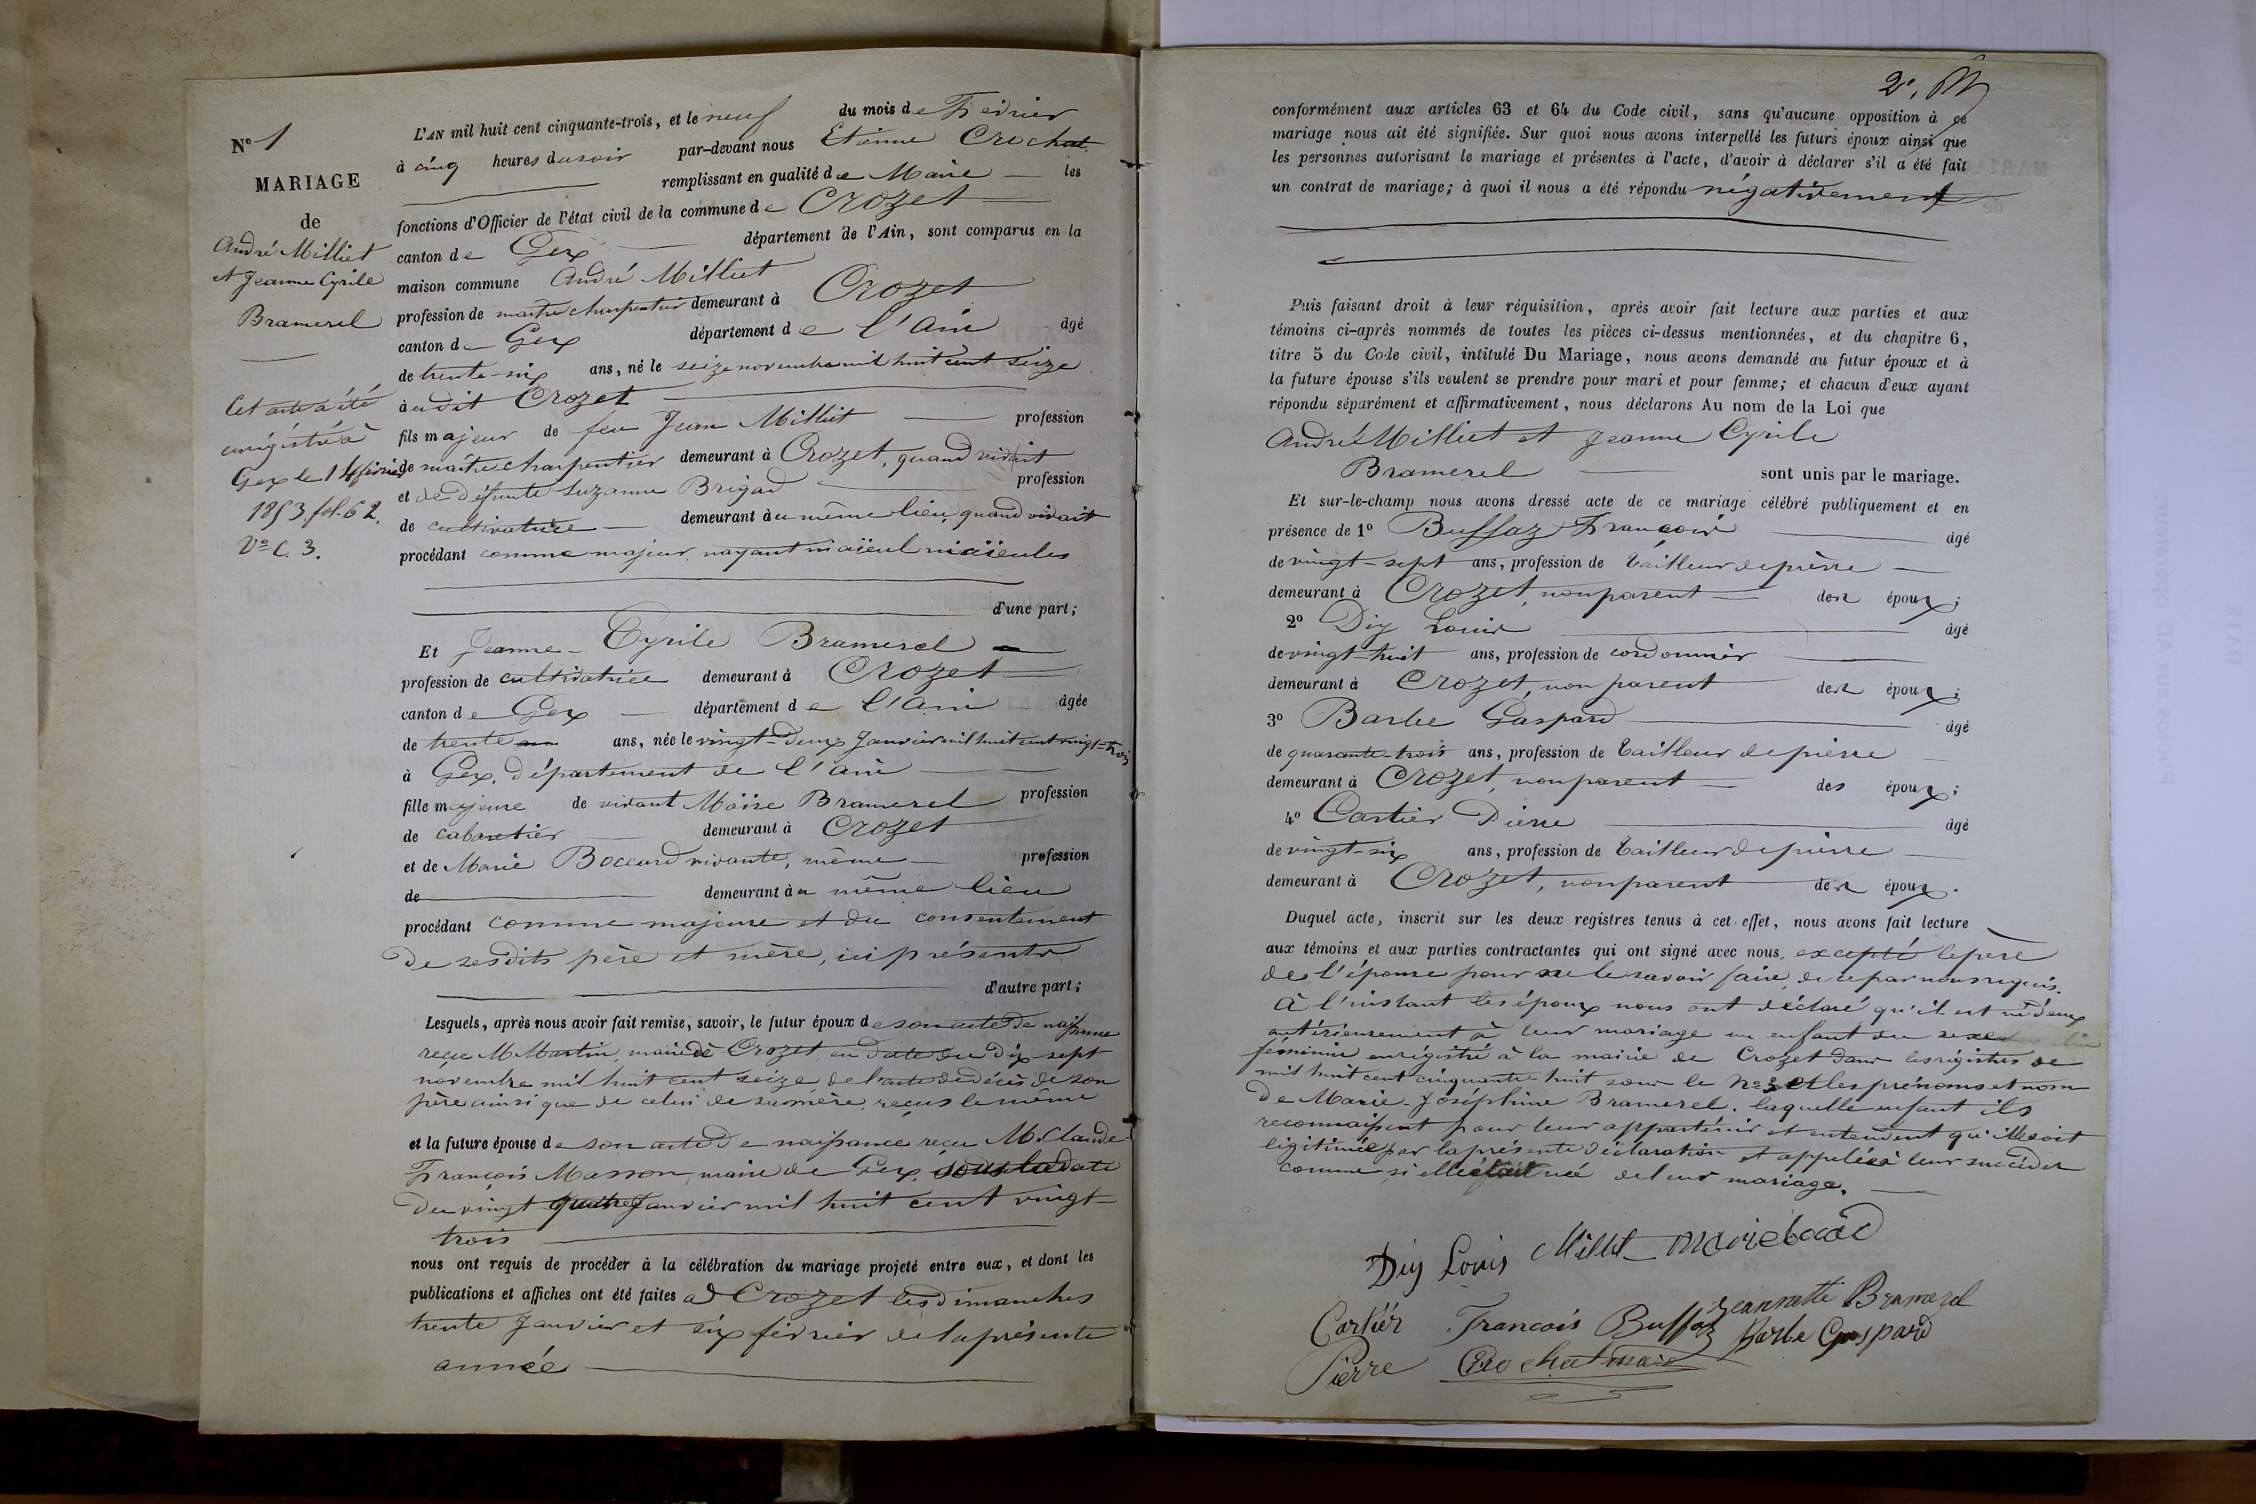 N° 1
MARIAGE
de
André Milliet
et Jeanne Cyrile
Bramerel
Cet acte a été
enrégistré à
Gex le 14 février
1853 fol. 62.
V° C. 3.
L'AN mil huit cent cinquante-trois, et le neuf du mois de Février
à cinq heures du soir par-devant nous Etienne Crochat
remplissant en qualité de Maire les
fonctions d'Officier de l'état civil de la commune de Crozet
canton de Gex département de l'Ain, sont comparus en la
maison commune André Milliet
profession de maître charpentier demeurant à Crozet
canton de Gex département de l'Ain âgé
de trente-six ans, né le seize novembre mil huit cent seize
à udit Crozet
fils majeur de feu Jean Milliet profession
de maître charpentier demeurant à Crozet, quand vivait
et de défunte Suzanne Brigad profession
de cultivatrice demeurant à u même lieu, quand vivait
procédant comme majeur, nayant ni aïeul ni aïeules
d'une part;
Et Jeanne-Cyrile Bramerel
profession de cultivatrice demeurant à Crozet
canton de Gex département de l'Ain âgée
de trente ans, née le vingt-deux Janvier mil huit cent vingt-trois
à Gex, département de l'ain
fille majeure de vivant Möise Bramerel profession
de cabaretier demeurant à Crozet
et de Marie Boccard vivante, même profession
de demeurant à u même lieu
procédant comme majeure et du consentement
de sesdits père et mère, ici présents
d'autre part;
Lesquels, après nous avoir fait remise, savoir, le futur époux de son acte de naissance
reçu M. Martin, maire de Crozet en date du dix-sept
novembre mil huit cent seize, de l'acte de décès de son
père ainsi que de celui de sa mère, reçus le même
et la future épouse de son acte de naissance reçu M. Claude
François Masson, maire de Gex, sous la date
du vingt quatre Janvier mil huit cent vingt-
trois
nous ont requis de procéder à la célébration du mariage projeté entre eux, et dont les
publications et affiches ont été faites à Crozet les dimanches
trente Janvier et six février de la présente
année
2e. M
conformément aux articles 63 et 64 du Code civil, sans qu'aucune opposition à ce
mariage nous ait été signifiée. Sur quoi nous avons interpellé les futurs époux ainsi que
les personnes autorisant le mariage et présentes à l'acte, d'avoir à déclarer s'il a été fait
un contrat de mariage; à quoi il nous a été répondu négativement
Puis faisant droit à leur réquisition, après avoir fait lecture aux parties et aux
témoins ci-après nommés de toutes les pièces ci-dessus mentionnées, et du chapitre 6,
titre 5 du Code civil, intitulé Du Mariage, nous avons demandé au futur époux et à
la future épouse s'ils veulent se prendre pour mari et pour femme; et chacun d'eux ayant
répondu séparément et affirmativement, nous déclarons Au nom de la Loi que
André Milliet et Jeanne Cyrile
Bramerel sont unis par le mariage.
Et sur-le-champ nous avons dressé acte de ce mariage célébré publiquement et en
présence de 1° Buffaz François âgé
de vingt-sept ans, profession de tailleur de pierre
demeurant à Crozet, non parent des époux;
2° Diy Louis âgé
de vingt-huit ans, profession de cordonnier
demeurant à Crozet, non parent des époux;
3° Barbe Gaspard âgé
de quarante-trois ans, profession de tailleur de pierre
demeurant à Crozet, non parent des époux;
4° Cartier Pierre âgé
de vingt-six ans, profession de tailleur de pierre
demeurant à Crozet, non parent des époux.
Duquel acte, inscrit sur les deux registres tenus à cet effet, nous avons fait lecture
aux témoins et aux parties contractantes qui ont signé avec nous, excepté le père
de l'épouse pour ne le savoir faire, de ce par nous requis.
à l'instant les époux nous ont déclaré qu'il est né d'eux
antérieurement à leur mariage un enfant du sexe
féminin enrégistré à la mairie de Crozet dans les régistres de
mil huit cent cinquante-huit sous le N° 3 et les prénoms et nom
de Marie-Joséphine Bramerel, laquelle enfant ils
reconnaissent pour leur appartenir et entendent qu'elle soit
légitimée par la présente déclaration et appelée à leur succéder
comme si elle était née de leur mariage.
Diy Louis Milliet marie bocard
Cartier François Buffaz Jeannette Bramerel
Pierre Crochat maire Barbe Gaspard